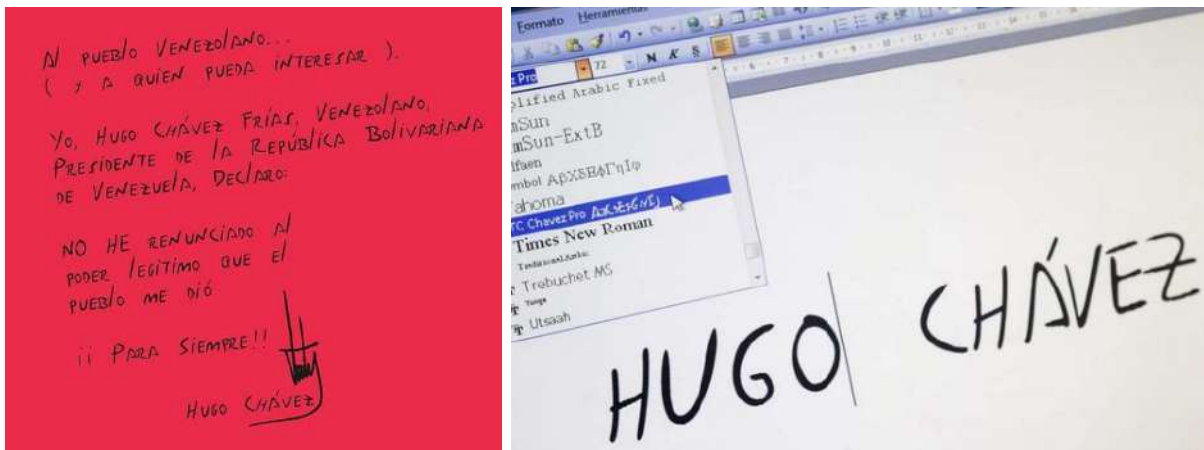 Al PUEBlo VENEZOlANO...
( Y A QUIEN PUEDA INTERESAR ).
Yo, HUGO CHÁVEZ FRÍAS, VENEZOlANO,
PRESIDENTE DE lA REPÚBlICA BOlIVARIANA
DE VENEZUElA, DEClARO:
NO HE RENUNCIADO Al
PODER lEGÍTIMO QUE El
PUEBlO ME DIÓ
¡¡ PARA SIEMPRE!!
HUGO CHÁVEZ
Formato Herramientas
z Pro 72 N K S
plified Arabic Fixed
mSun
mSun-ExtB
lfaen
mbol ΑβΧδΕφΓηΙφ
ahoma
TC Chavez Pro
Times New Roman
Traditional Arabic
Trebuchet MS
Tunga
Utsaah
HUGO CHÁVEZ